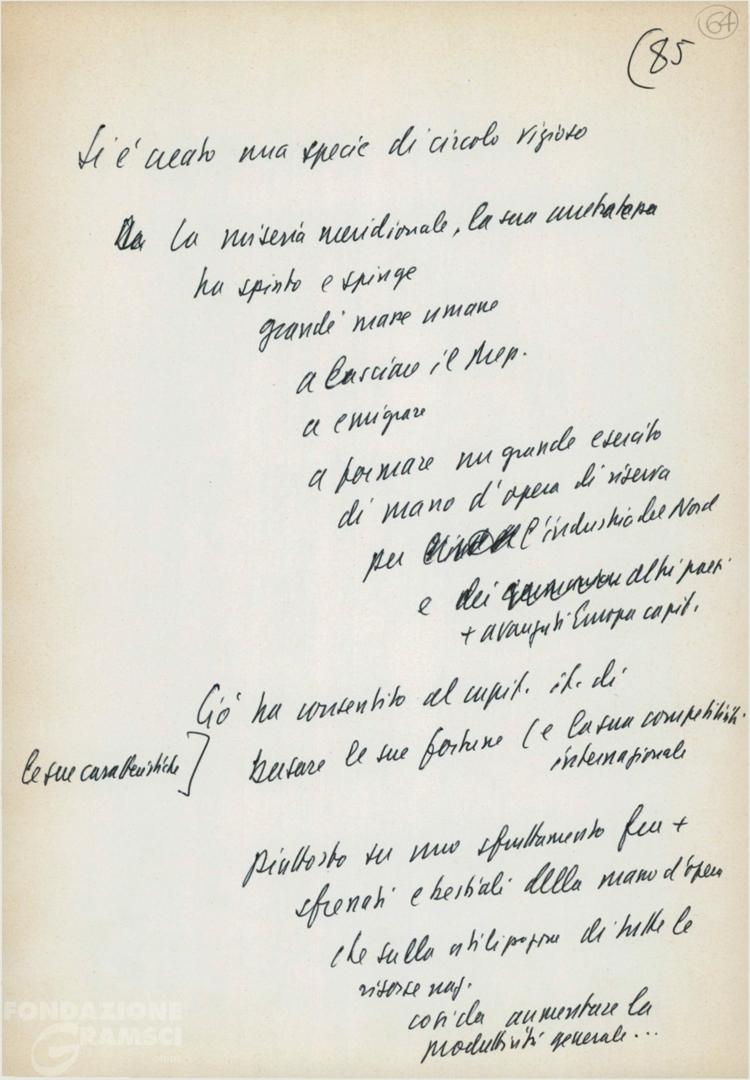 64
(85
Si è creato una specie di circolo vizioso
La miseria meridionale, la sua arretratezza
ha spinto e spinge
grandi masse umane
a lasciare il Mezz.
a emigrare
a formare un grande esercito
di mano d'opera di riserva
per l'industria del Nord
e dei altri paesi
+ avanzati Europa capit.
Ciò ha consentito al capit. it. di
le sue caratteristiche]
basare le sue fortune (e la sua competitività
internazionale
piuttosto su uno sfruttamento fra +
sfrenati e bestiali della mano d'opera
che sulla utilizzazione di tutte le
risorse naz.
così da aumentare la
produttività generale...
FONDAZIONE
GRAMSCI